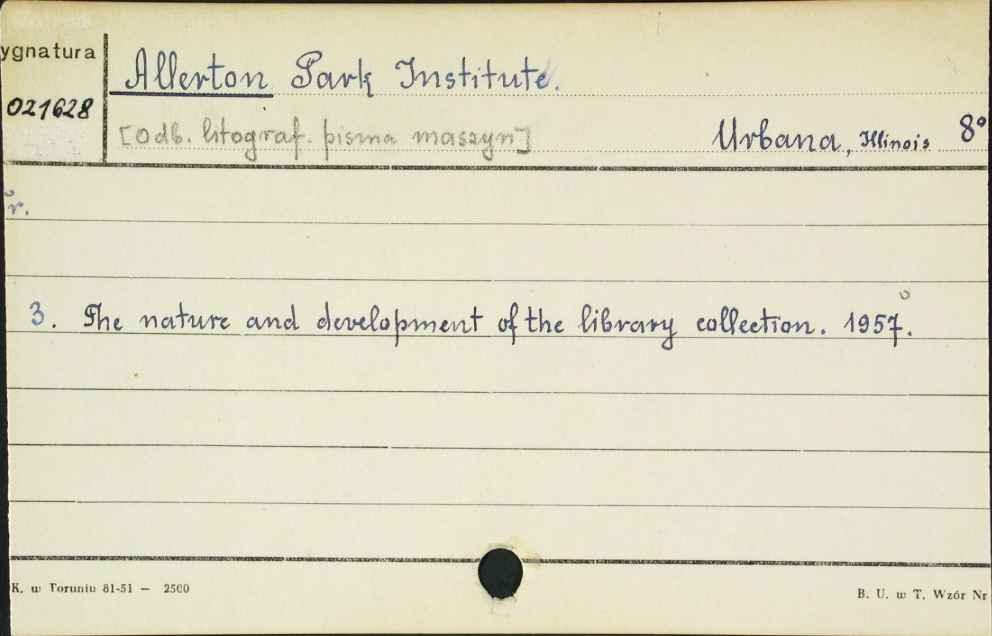 ygnatura
Allerton Park Institute.
021628
[Odb. litograf. pisma maszyn] Urbana, Illinois 8°
r.
3. The nature and development of the library collection. 1957.
K. w Toruniu 81-51 — 2500
B. U. w T. Wzór Nr